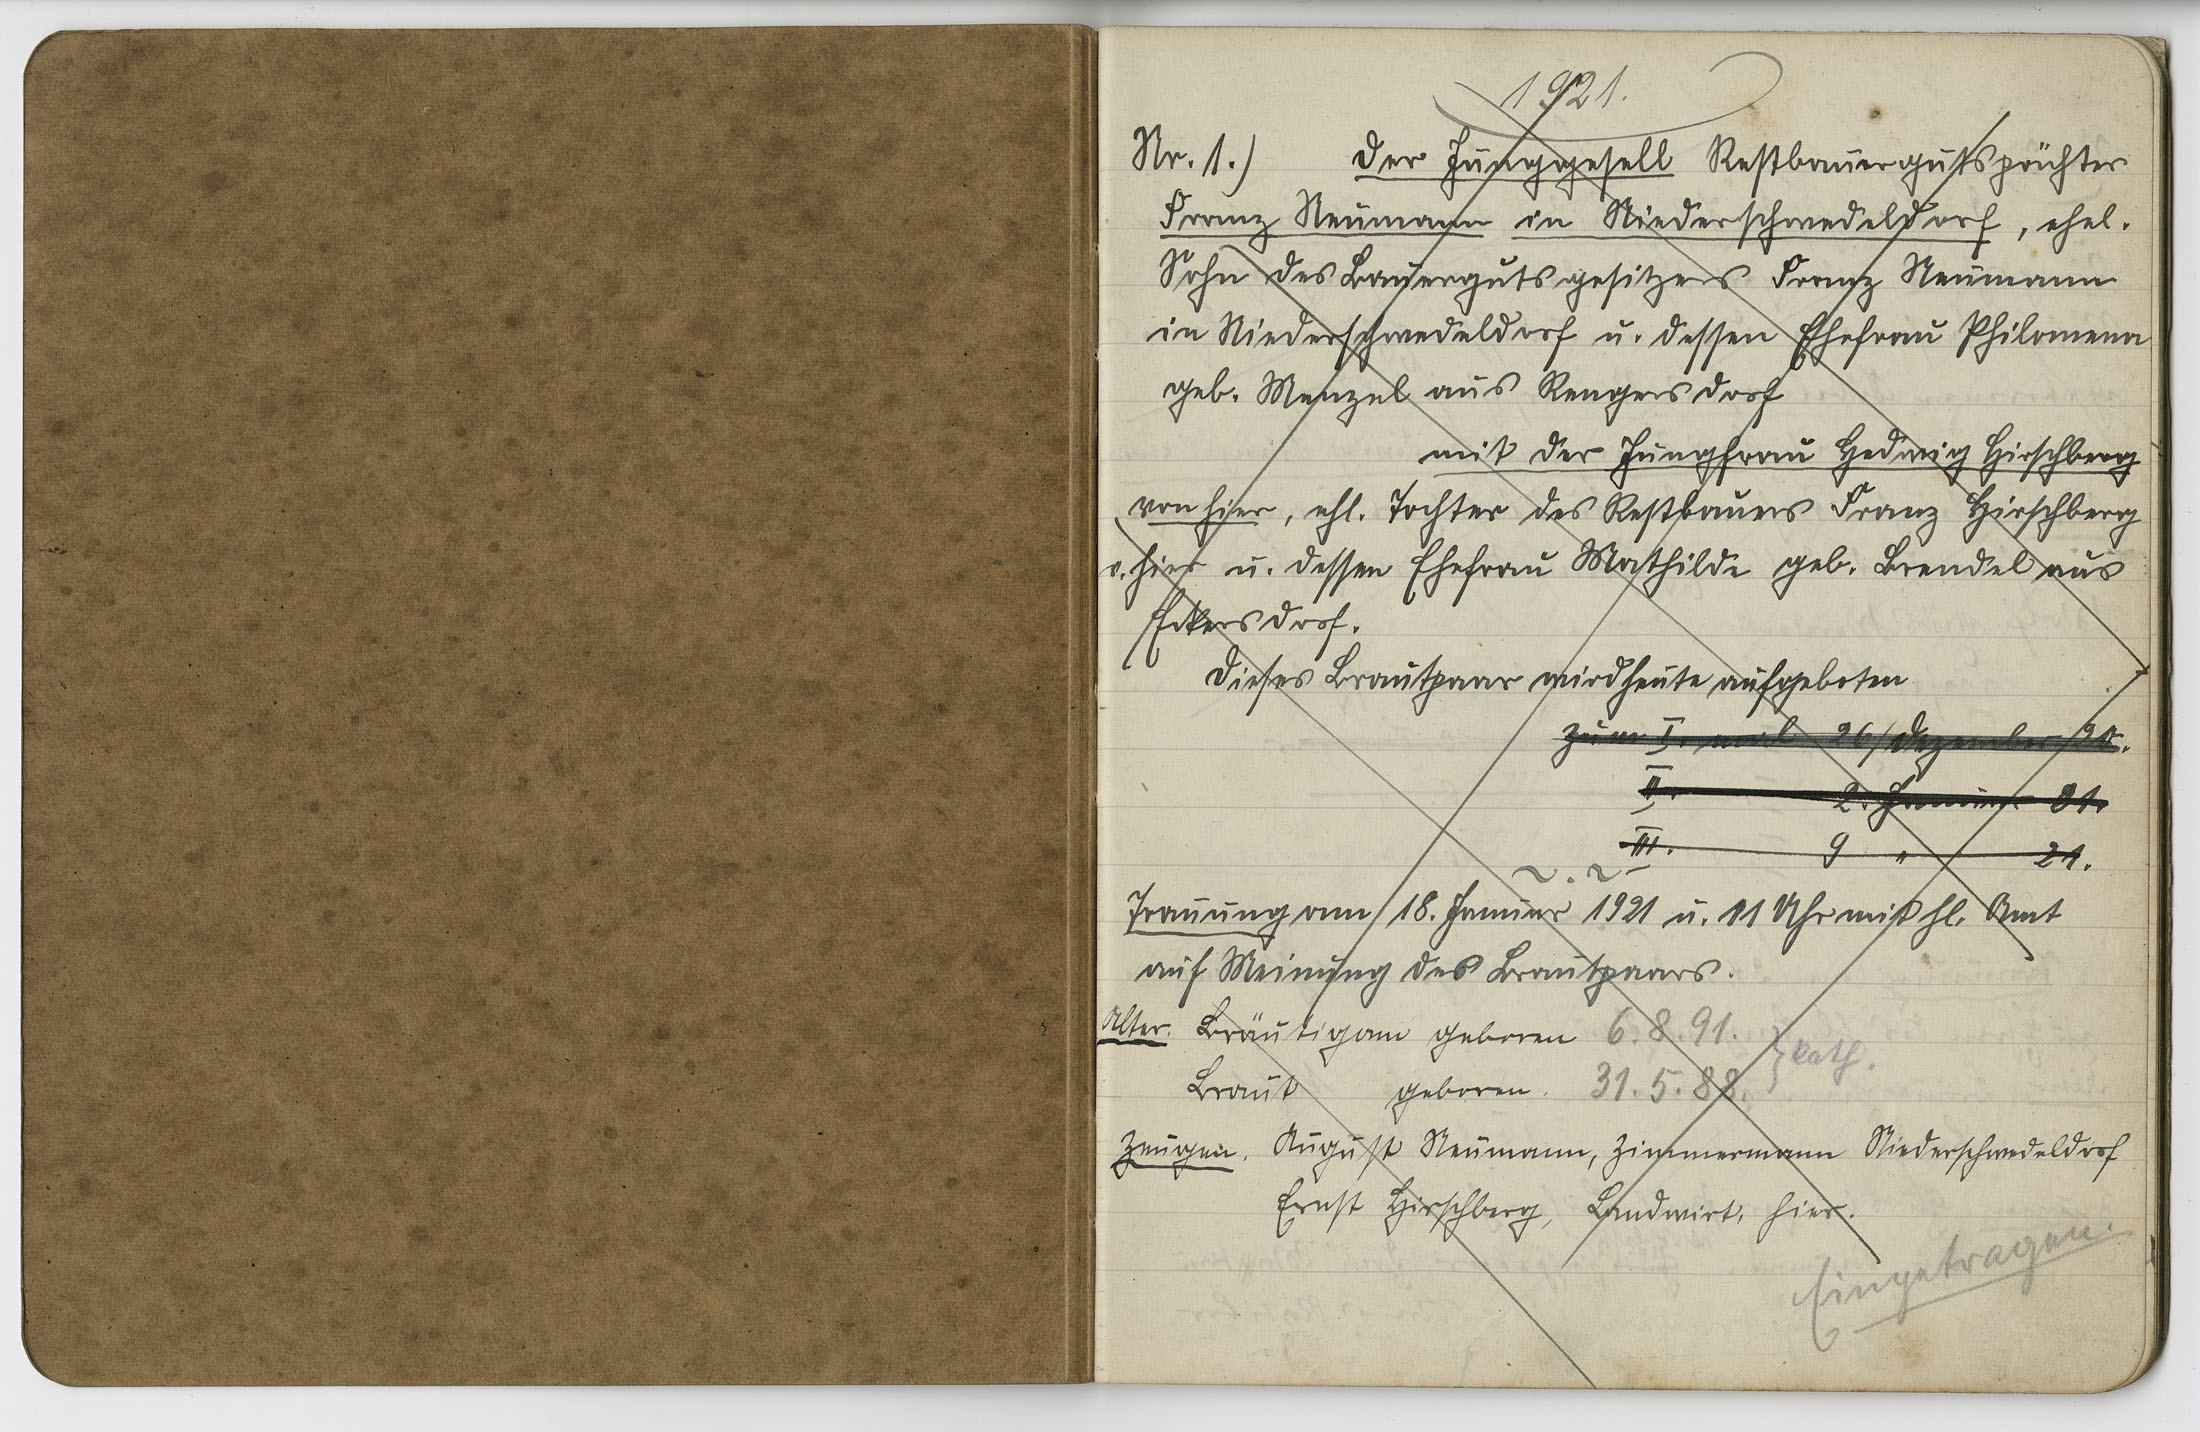 1921.
Nr. 1.) Der Junggesell Restbauergutspächter
Franz Neumann in Niederschwedeldorf, ehel.
Sohn des Bauergutsgesitzers Franz Neumann
in Niederschwedeldorf u. dessen Ehefrau Philomena
geb. Menzel aus Rengersdorf
mit der Jungfrau Hedwig Hirschberg
von hier, ehl. Tochter des Restbauers Franz Hirschberg
v. hier u. dessen Ehefrau Mathilde geb. Brendel aus
Eckersdorf.
Dieses Brautpaar wird heute aufgeboten
zum I. mal 26/Dezember 20.
II. 2. Januar 21.
III. 9 " 21.
Trauung am 18. Januar 1921 u. 11 Uhr mit hl. Amt
auf Meinung des Brautpaars.
Alter. Bräutigam geboren 6.8.91.
} kath.
Braut geboren. 31.5.88.
Zeugen. August Neumann, Zimmermann Niederschwedeldorf
Ernst Hirschberg, Landwirt, hier.
Eingetragen.